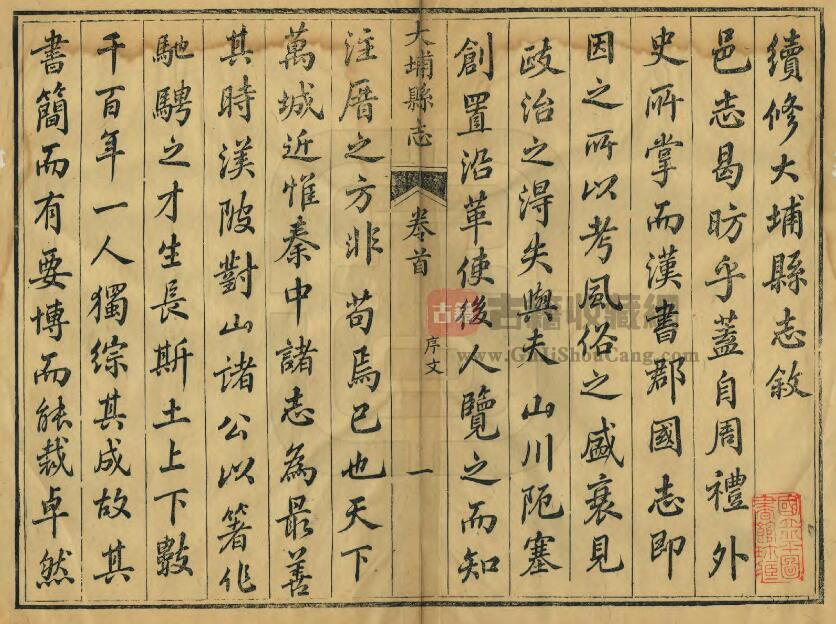 續修大埔縣志敘
邑志曷昉乎蓋自周禮外
史所掌而漢書郡國志即
因之所以考風俗之盛衰見
政治之得失與夫山川阨塞
創置沿革使後人覽之而知
大埔縣志
卷首
序文
一
注厝之方非苟焉已也天下
萬城近惟秦中諸志為最善
其時渼陂對山諸公以箸作
馳騁之才生長斯土上下數
千百年一人獨綜其成故其
書簡而有要博而能裁卓然
古籍
古籍收藏網
www.GuJiShouCang.com